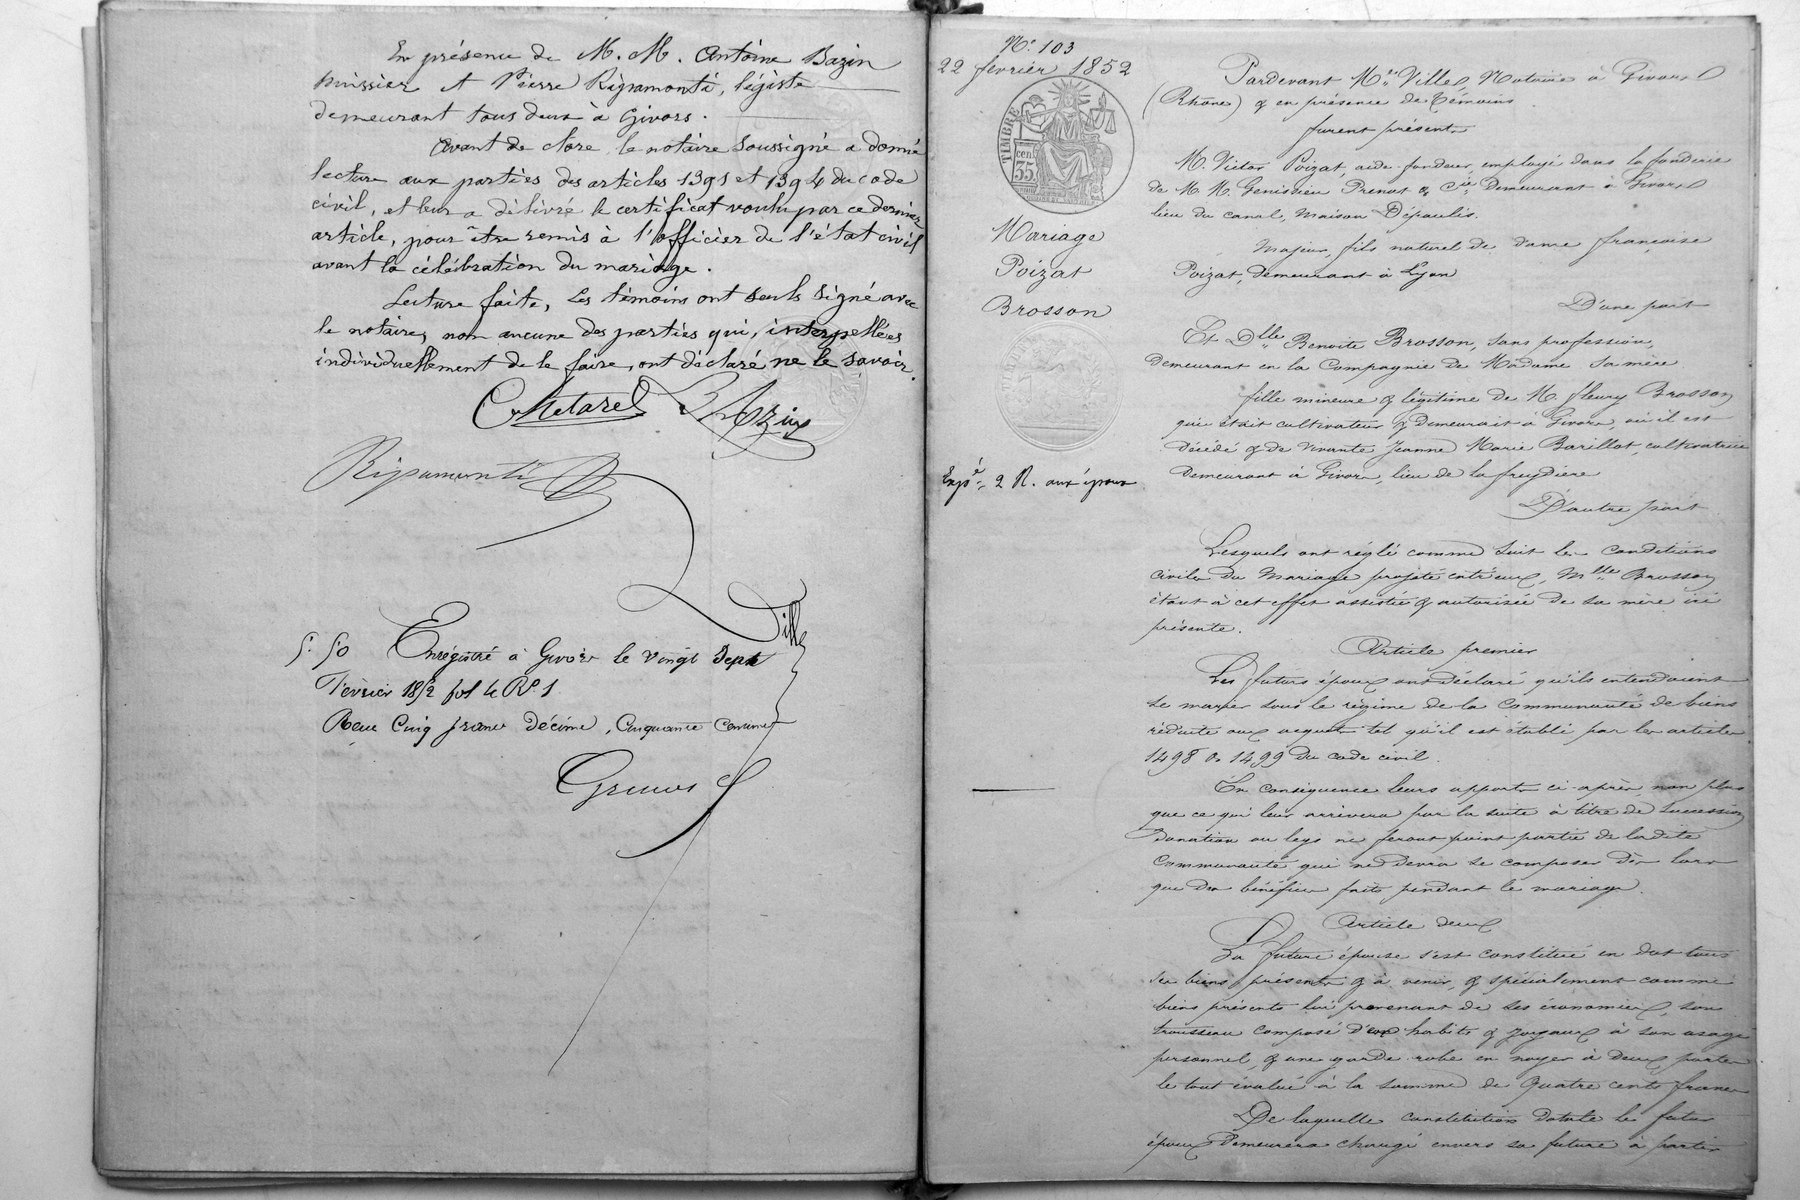 En présence de M. M. Antoine Bazin
huissier et Pierre Ripamonti, légiste
demeurant tous deux à Givors.
Avant de clore le notaire soussigné a donné
lecture aux parties des articles 1391 et 1394 du code
civil, et leur a délivré le certificat voulu par ce dernier
article, pour être remis à l'officier de l'état civil
avant la célébration du mariage.
Lecture faite, les témoins ont seuls signé avec
le notaire, non aucune des parties qui, interpellées
individuellement de le faire, ont déclaré ne le savoir.
Bazin
Ripamonti
Ville
5. 50 Enregistré à Givors le vingt sept
Février 1852 fol 4 Ro 1
Reçu Cinq francs décime, Cinquante Centimes
N.° 103
22 février 1852
TIMBRE
35 cen
Mariage
Poizat
Brosson
Expé. 2 R. aux époux
Pardevant Me Ville Notaire à Givors
(Rhône) & en présence de témoins
furent présents
M. Victor Poizat, aide fondeur employé dans la fonderie
de M. M. Genissieu Prenat & Cie Demeurant à Givors
lieu du canal, Maison Dépaulis.
Majeur, fils naturel de dame françoise
Poizat, demeurant à Lyon
D'une part
Et Dlle Benoite Brosson, sans profession,
demeurant en la Compagnie de Madame sa mère
fille mineure & légitime de M. fleury Brosson
qui était cultivateur & Demeurait à Givors, où il est
décédé & de vivante Jeanne Marie Barillot, cultivatrice
demeurant à Givors, lieu de la freydière
D'autre part
Lesquels ont réglé comme suit les conditions
civiles du Mariage projeté entr'eux, Mlle Brosson
étant à cet effet assistée & autorisée de sa mère ici
présente.
Article premier
Les futurs époux ont déclaré qu'ils entendaient
se marier sous le régime de la Communauté de biens
réduite aux acquets tel qu'il est établi par les articles
1498 & 1499 du code civil.
En conséquence leurs apports ci-après, non plus
que ce qui leur arrivera par la suite à titre de succession
donation ou legs ne feront point partie de ladite
Communauté qui ne devra se composer dès lors
que des bénéfices faits pendant le mariage.
Article deux
La future épouse s'est constitué en dot tous
ses biens présents & à venir, & spécialement comme
biens présents lui provenant de ses économies, son
trousseau composé d'eux habits & joyaux à son usage
personnel, & une garde robe en noyer à deux portes
le tout évalué à la somme de quatre cents francs
De laquelle constitution dotale le futur
époux Demeurera chargé envers sa future à partir